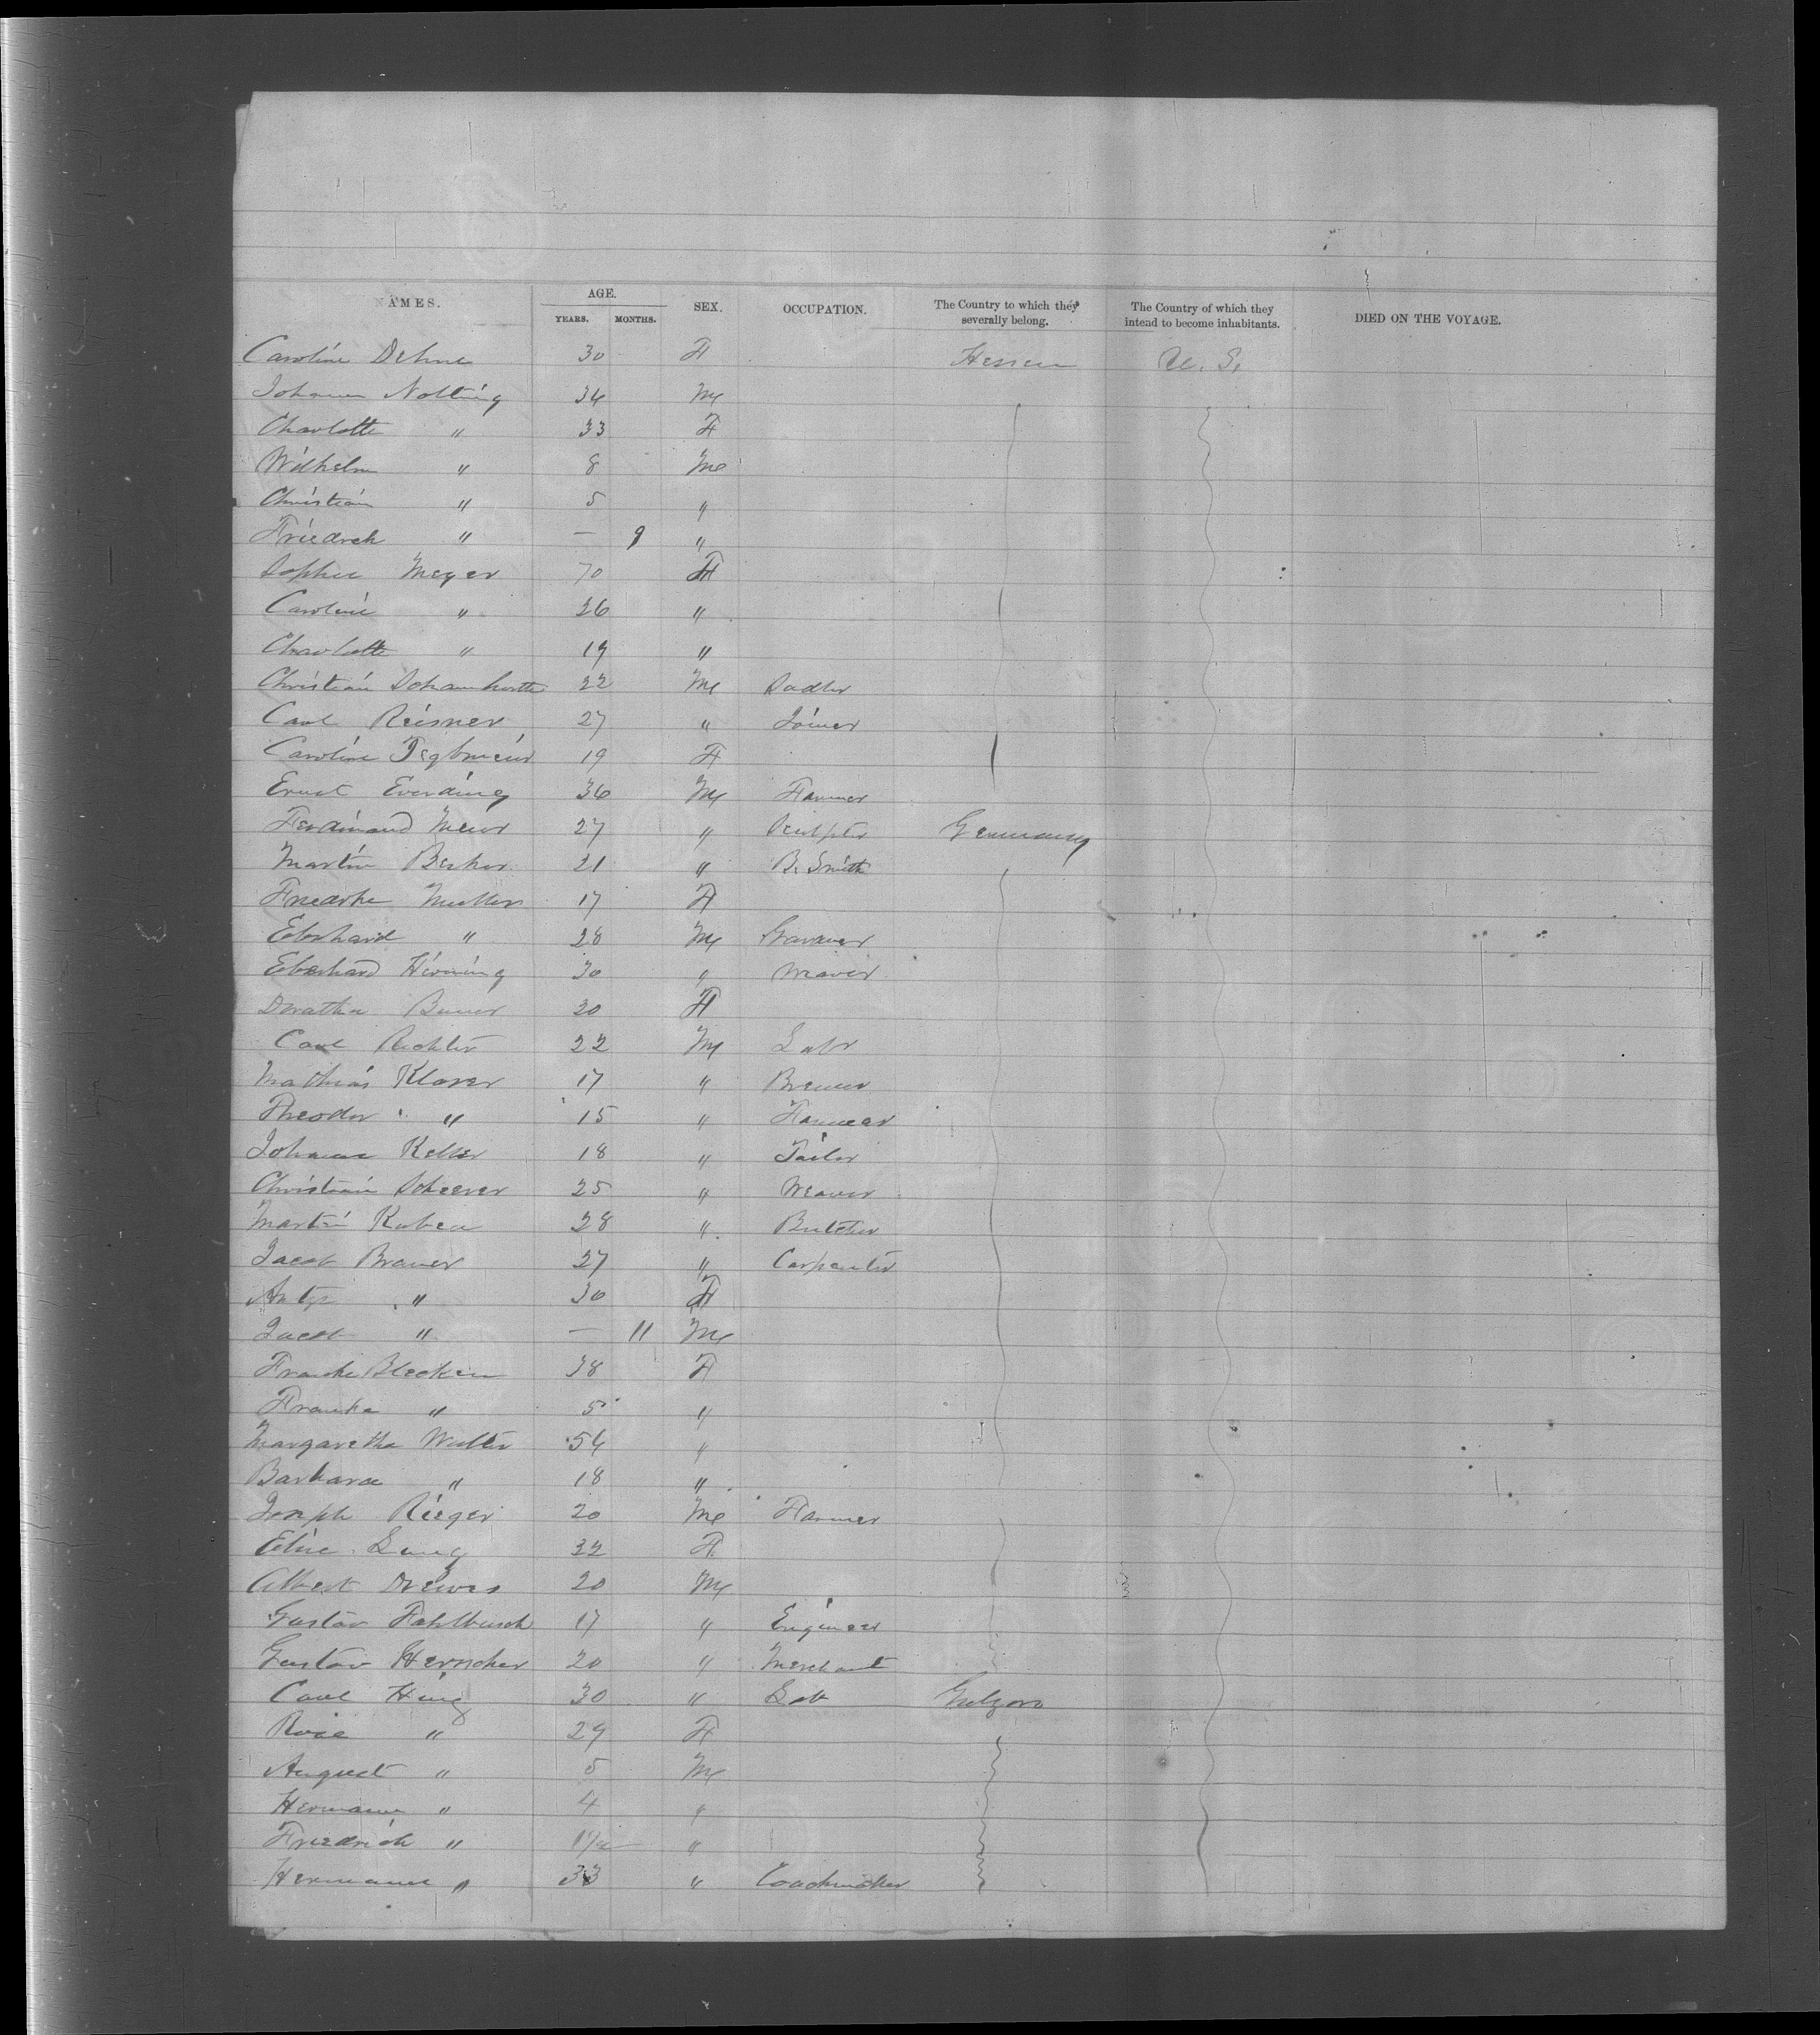 NAMES. AGE. YEARS. MONTHS. SEX. OCCUPATION. The Country to which they severally belong. The Country of which they intend to become inhabitants. DIED ON THE VOYAGE.
Caroline Dehne 30 F Hessen U. S.
Johann Nolting 34 M
Charlotte " 33 F
Wilhelm " 8 M
Christian " 5 "
Friedrch " — 9 "
Sophie Meyer 70 F
Caroline " 26 "
Charlotte " 19 "
Christian 22 M Sadler
Carl Reisner 27 " Joiner
Caroline 19 F
Ernst Everding 36 M Farmer
Ferdinand Meier 27 " Sculptor Germany
Martin Becker 21 " B. Smith
Friedrke Muller 17 F
Eberhard " 28 M
Eberhard 30 " Weaver
Doratha 20 F
Carl Richter 22 M Labr
Mathias Klaser 17 " Brewer
Theodor " 15 " Farmear
Johann Keller 18 " Tailor
Christian Scheerer 25 " Weaver
Martin Kubea 28 " Butcher
Jacob Brauer 27 " Carpenter
Antje " 30 F
Jacob " — 11 M
Frauke Bleeken 38 F
Frauke " 5 "
Margaretha Walter 54 "
Barbara " 18 "
Joseph Rieger 20 M Farmer
Elise Lang 32 F
Albert Drewes 20 M
Gustav Fahlbusch 17 " Engineer
Gustav Herrscher 20 " Merchant
Carl Hing 30 " Lab
Rosa " 29 F
August " 5 M
Hermann " 4 "
Friedrich " "
Hermann " 33 " Coachmaker